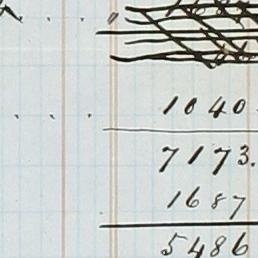 1040
7173.
1687
5486